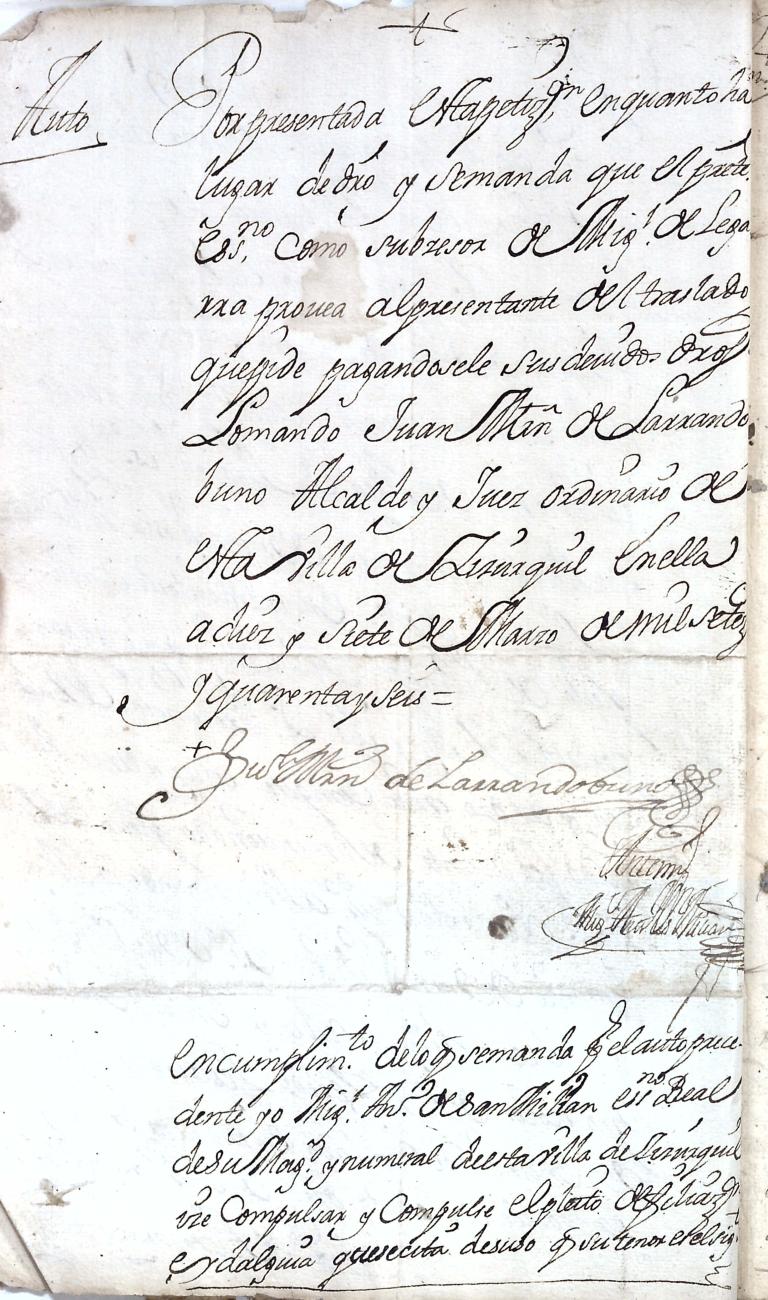 Auto
Por presentada esta petizn. en quanto ha
lugar de dro y se manda que el preste.
essno. como subzesor de Migl. de Lega
rra provea al presentante del traslado
que pide pagandosele sus devidos dros
Lo mando Juan Mrn de Larrando
buno Alcalde y Juez ordinario de
esta villa de Zizurquil en ella
a diez y siete de Marzo de mil setez
y quarenta y seis =
Jun Mrn de Larrandobuno
Antemi
Migl Anto de San Millan
en cumplimto. de lo q se manda pr el auto prece
dente yo Migl. Anto. de San Millan essno Real
de su Magd. y numeral de esta villa de Zizurquil
ize Compulsar y Compulse el pleito de filiazn
e ydalguia que se cita de suso q su tenor es el sigte